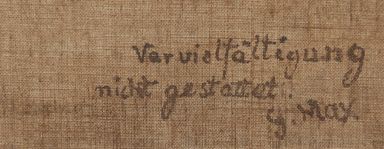 Vervielfältigung
nicht gestattet.
G. Max.